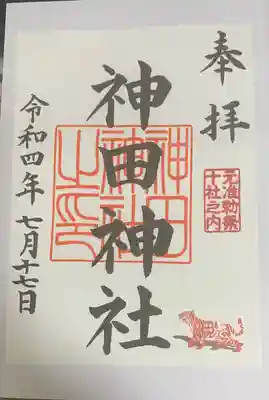 奉拝
元准勅祭
十社之内
神田神社
神田
神社
之印
令和四年 七月十七日